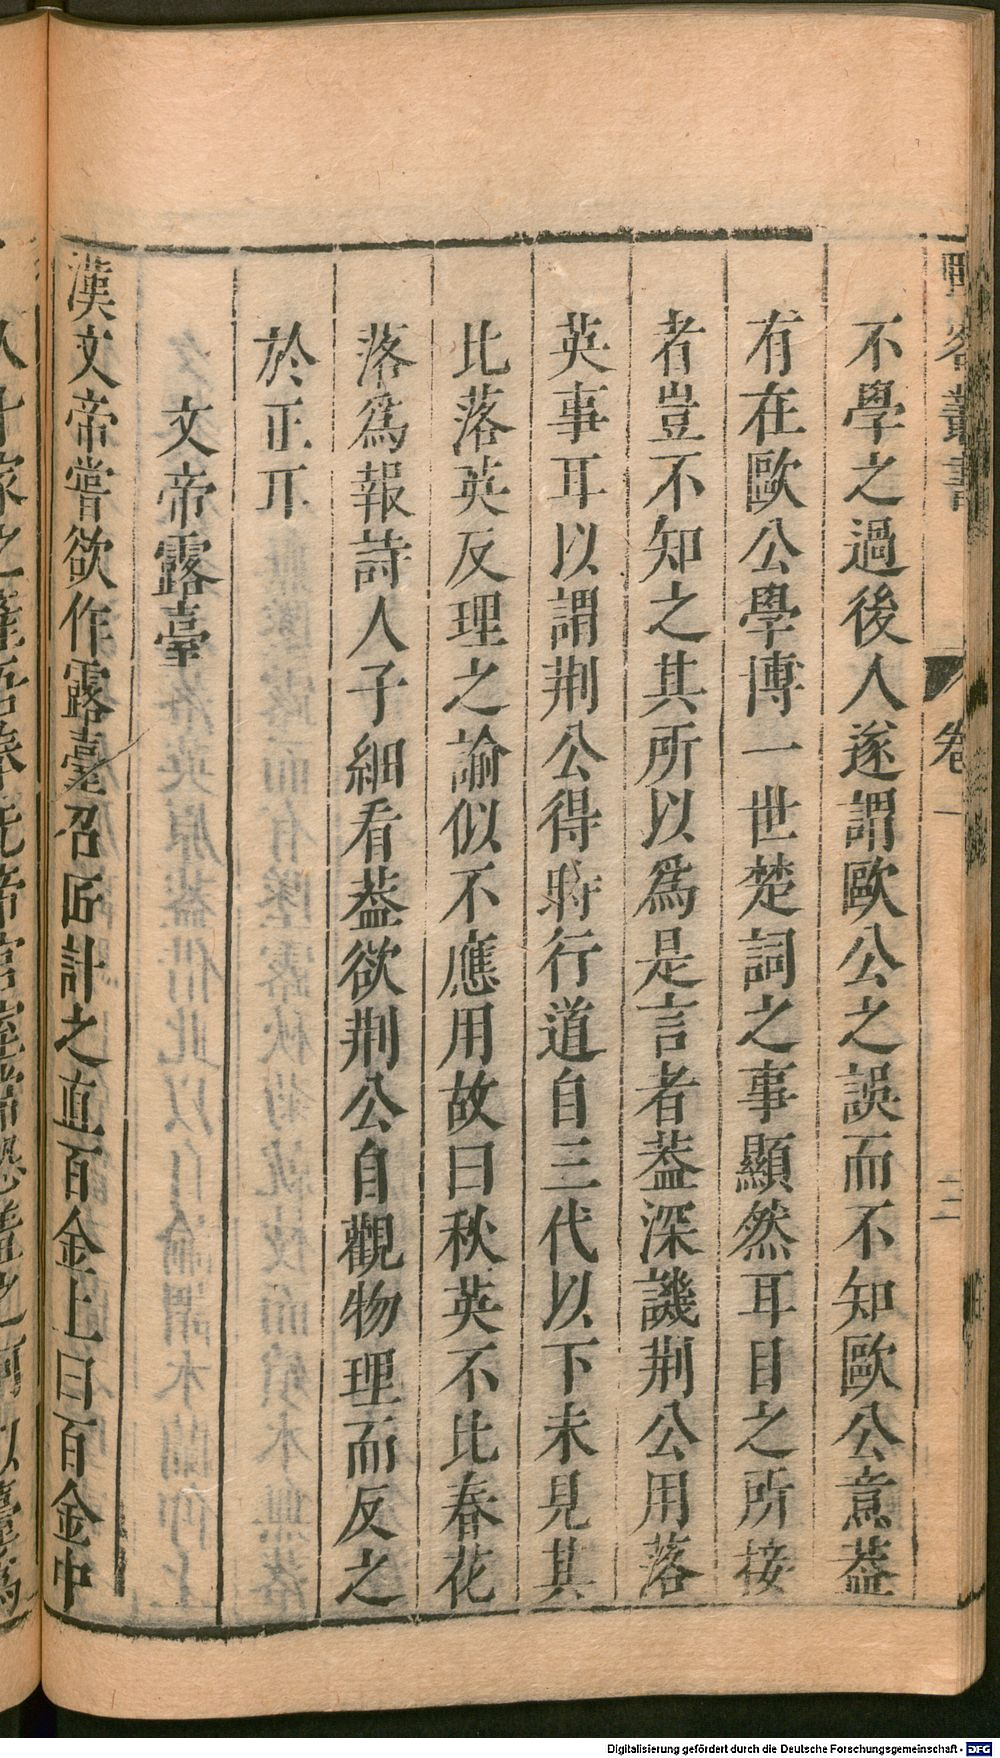 野客叢書
卷一
二
不學之過後人遂謂歐公之誤而不知歐公意葢
有在歐公學博一世楚詞之事顯然耳目之所接
者豈不知之其所以爲是言者葢深譏荆公用落
英事耳以謂荆公得時行道自三代以下未見其
比落英反理之論似不應用故曰秋英不比春花
落爲報詩人子細看葢欲荆公自觀物理而反之
於正耳
文帝露臺
漢文帝嘗欲作露臺召匠計之直百金上曰百金中
人十家之產吾奉先帝宮室常恐羞之何以臺爲
Digitalisierung gefördert durch die Deutsche Forschungsgemeinschaft - DFG